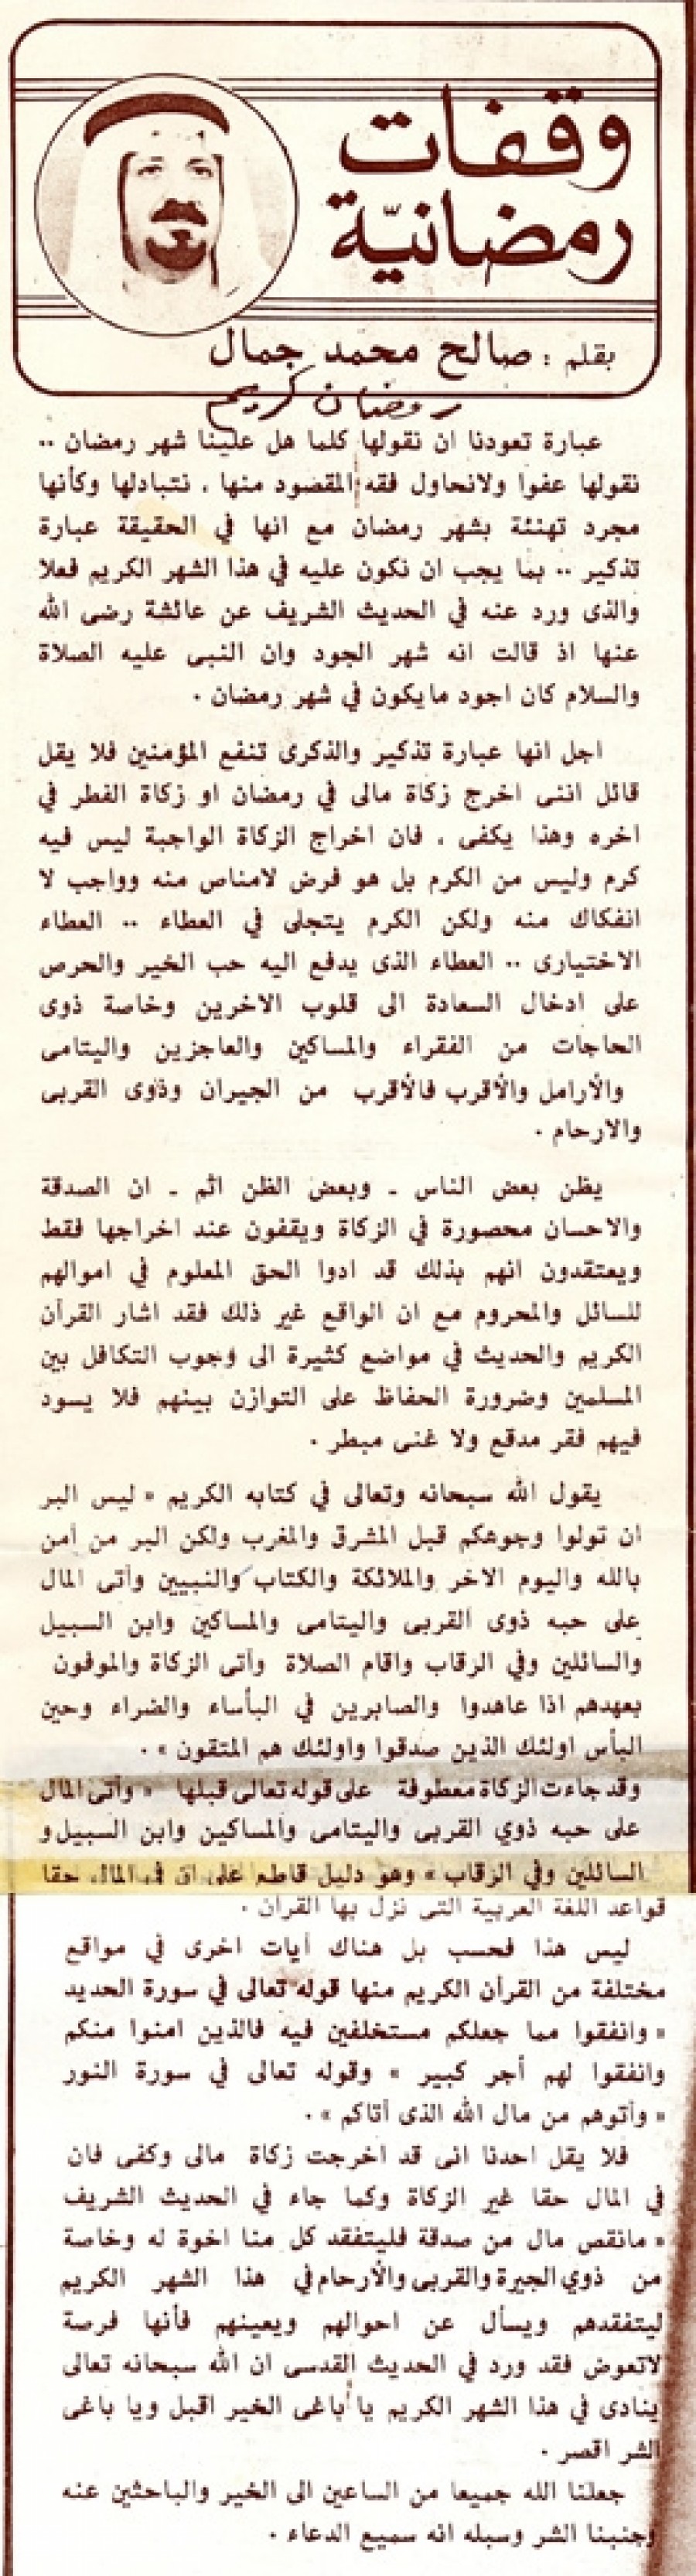 وقفات
رمضانيّة
بقلم : صالح محمد جمال
رمضان كريم
عبارة تعودنا ان نقولها كلما هل علينا شهر رمضان ..
نقولها عفوا ولانحاول فقه المقصود منها . نتبادلها وكأنها
مجرد تهنئة بشهر رمضان مع انها في الحقيقة عبارة
تذكير .. بما يجب ان نكون عليه في هذا الشهر الكريم فعلا
والذى ورد عنه في الحديث الشريف عن عائشة رضى الله
عنها اذ قالت انه شهر الجود وان النبى عليه الصلاة
والسلام كان اجود مايكون في شهر رمضان .
اجل انها عبارة تذكير والذكرى تنفع المؤمنين فلا يقل
قائل اننى اخرج زكاة مالى في رمضان او زكاة الفطر في
اخره وهذا يكفى . فان اخراج الزكاة الواجبة ليس فيه
كرم وليس من الكرم بل هو فرض لامناص منه وواجب لا
انفكاك منه ولكن الكرم يتجلى في العطاء .. العطاء
الاختيارى .. العطاء الذى يدفع اليه حب الخير والحرص
على ادخال السعادة الى قلوب الاخرين وخاصة ذوى
الحاجات من الفقراء والمساكين والعاجزين واليتامى
والأرامل والأقرب فالأقرب من الجيران وذوى القربى
والارحام .
يظن بعض الناس ـ وبعض الظن اثم ـ ان الصدقة
والاحسان محصورة في الزكاة ويقفون عند اخراجها فقط
ويعتقدون انهم بذلك قد ادوا الحق المعلوم في اموالهم
للسائل والمحروم مع ان الواقع غير ذلك فقد اشار القرآن
الكريم والحديث في مواضع كثيرة الى وجوب التكافل بين
المسلمين وضرورة الحفاظ على التوازن بينهم فلا يسود
فيهم فقر مدقع ولا غنى مبطر .
يقول الله سبحانه وتعالى في كتابه الكريم « ليس البر
ان تولوا وجوهكم قبل المشرق والمغرب ولكن البر من آمن
بالله واليوم الاخر والملائكة والكتاب والنبيين وآتى المال
على حبه ذوى القربى واليتامى والمساكين وابن السبيل
والسائلين وفي الرقاب واقام الصلاة وآتى الزكاة والموفون
بعهدهم اذا عاهدوا والصابرين في البأساء والضراء وحين
البأس اولئك الذين صدقوا واولئك هم المتقون » .
وقد جاءت الزكاة معطوفة على قوله تعالى قبلها « وآتى المال
على حبه ذوي القربى واليتامى والمساكين وابن السبيل و
السائلين وفي الرقاب » وهو دليل قاطع على ان في المال حقا
قواعد اللغة العربية التى نزل بها القرآن .
ليس هذا فحسب بل هناك آيات اخرى في مواقع
مختلفة من القرآن الكريم منها قوله تعالى في سورة الحديد
« وانفقوا مما جعلكم مستخلفين فيه فالذين امنوا منكم
وانفقوا لهم أجر كبير » وقوله تعالى في سورة النور
« وآتوهم من مال الله الذى آتاكم » .
فلا يقل احدنا انى قد اخرجت زكاة مالى وكفى فان
في المال حقا غير الزكاة وكما جاء في الحديث الشريف
« مانقص مال من صدقة فليتفقد كل منا اخوة له وخاصة
من ذوي الجيرة والقربى والأرحام في هذا الشهر الكريم
ليتفقدهم ويسأل عن احوالهم ويعينهم فأنها فرصة
لاتعوض فقد ورد في الحديث القدسى ان الله سبحانه تعالى
ينادى في هذا الشهر الكريم يا أباغى الخير اقبل ويا باغى
الشر اقصر .
جعلنا الله جميعا من الساعين الى الخير والباحثين عنه
وجنبنا الشر وسبله انه سميع الدعاء .